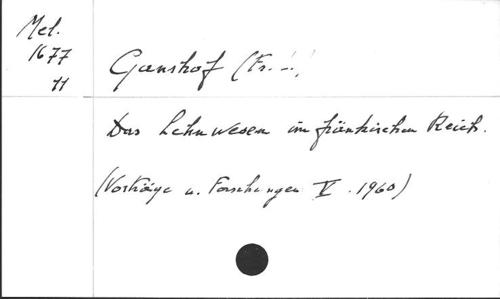 Mel.
1677
11
Ganshof (Fr. L.)
Das Lehnwesen im fränkischen Reich.
(Vorträge u. Forschungen V. 1960)